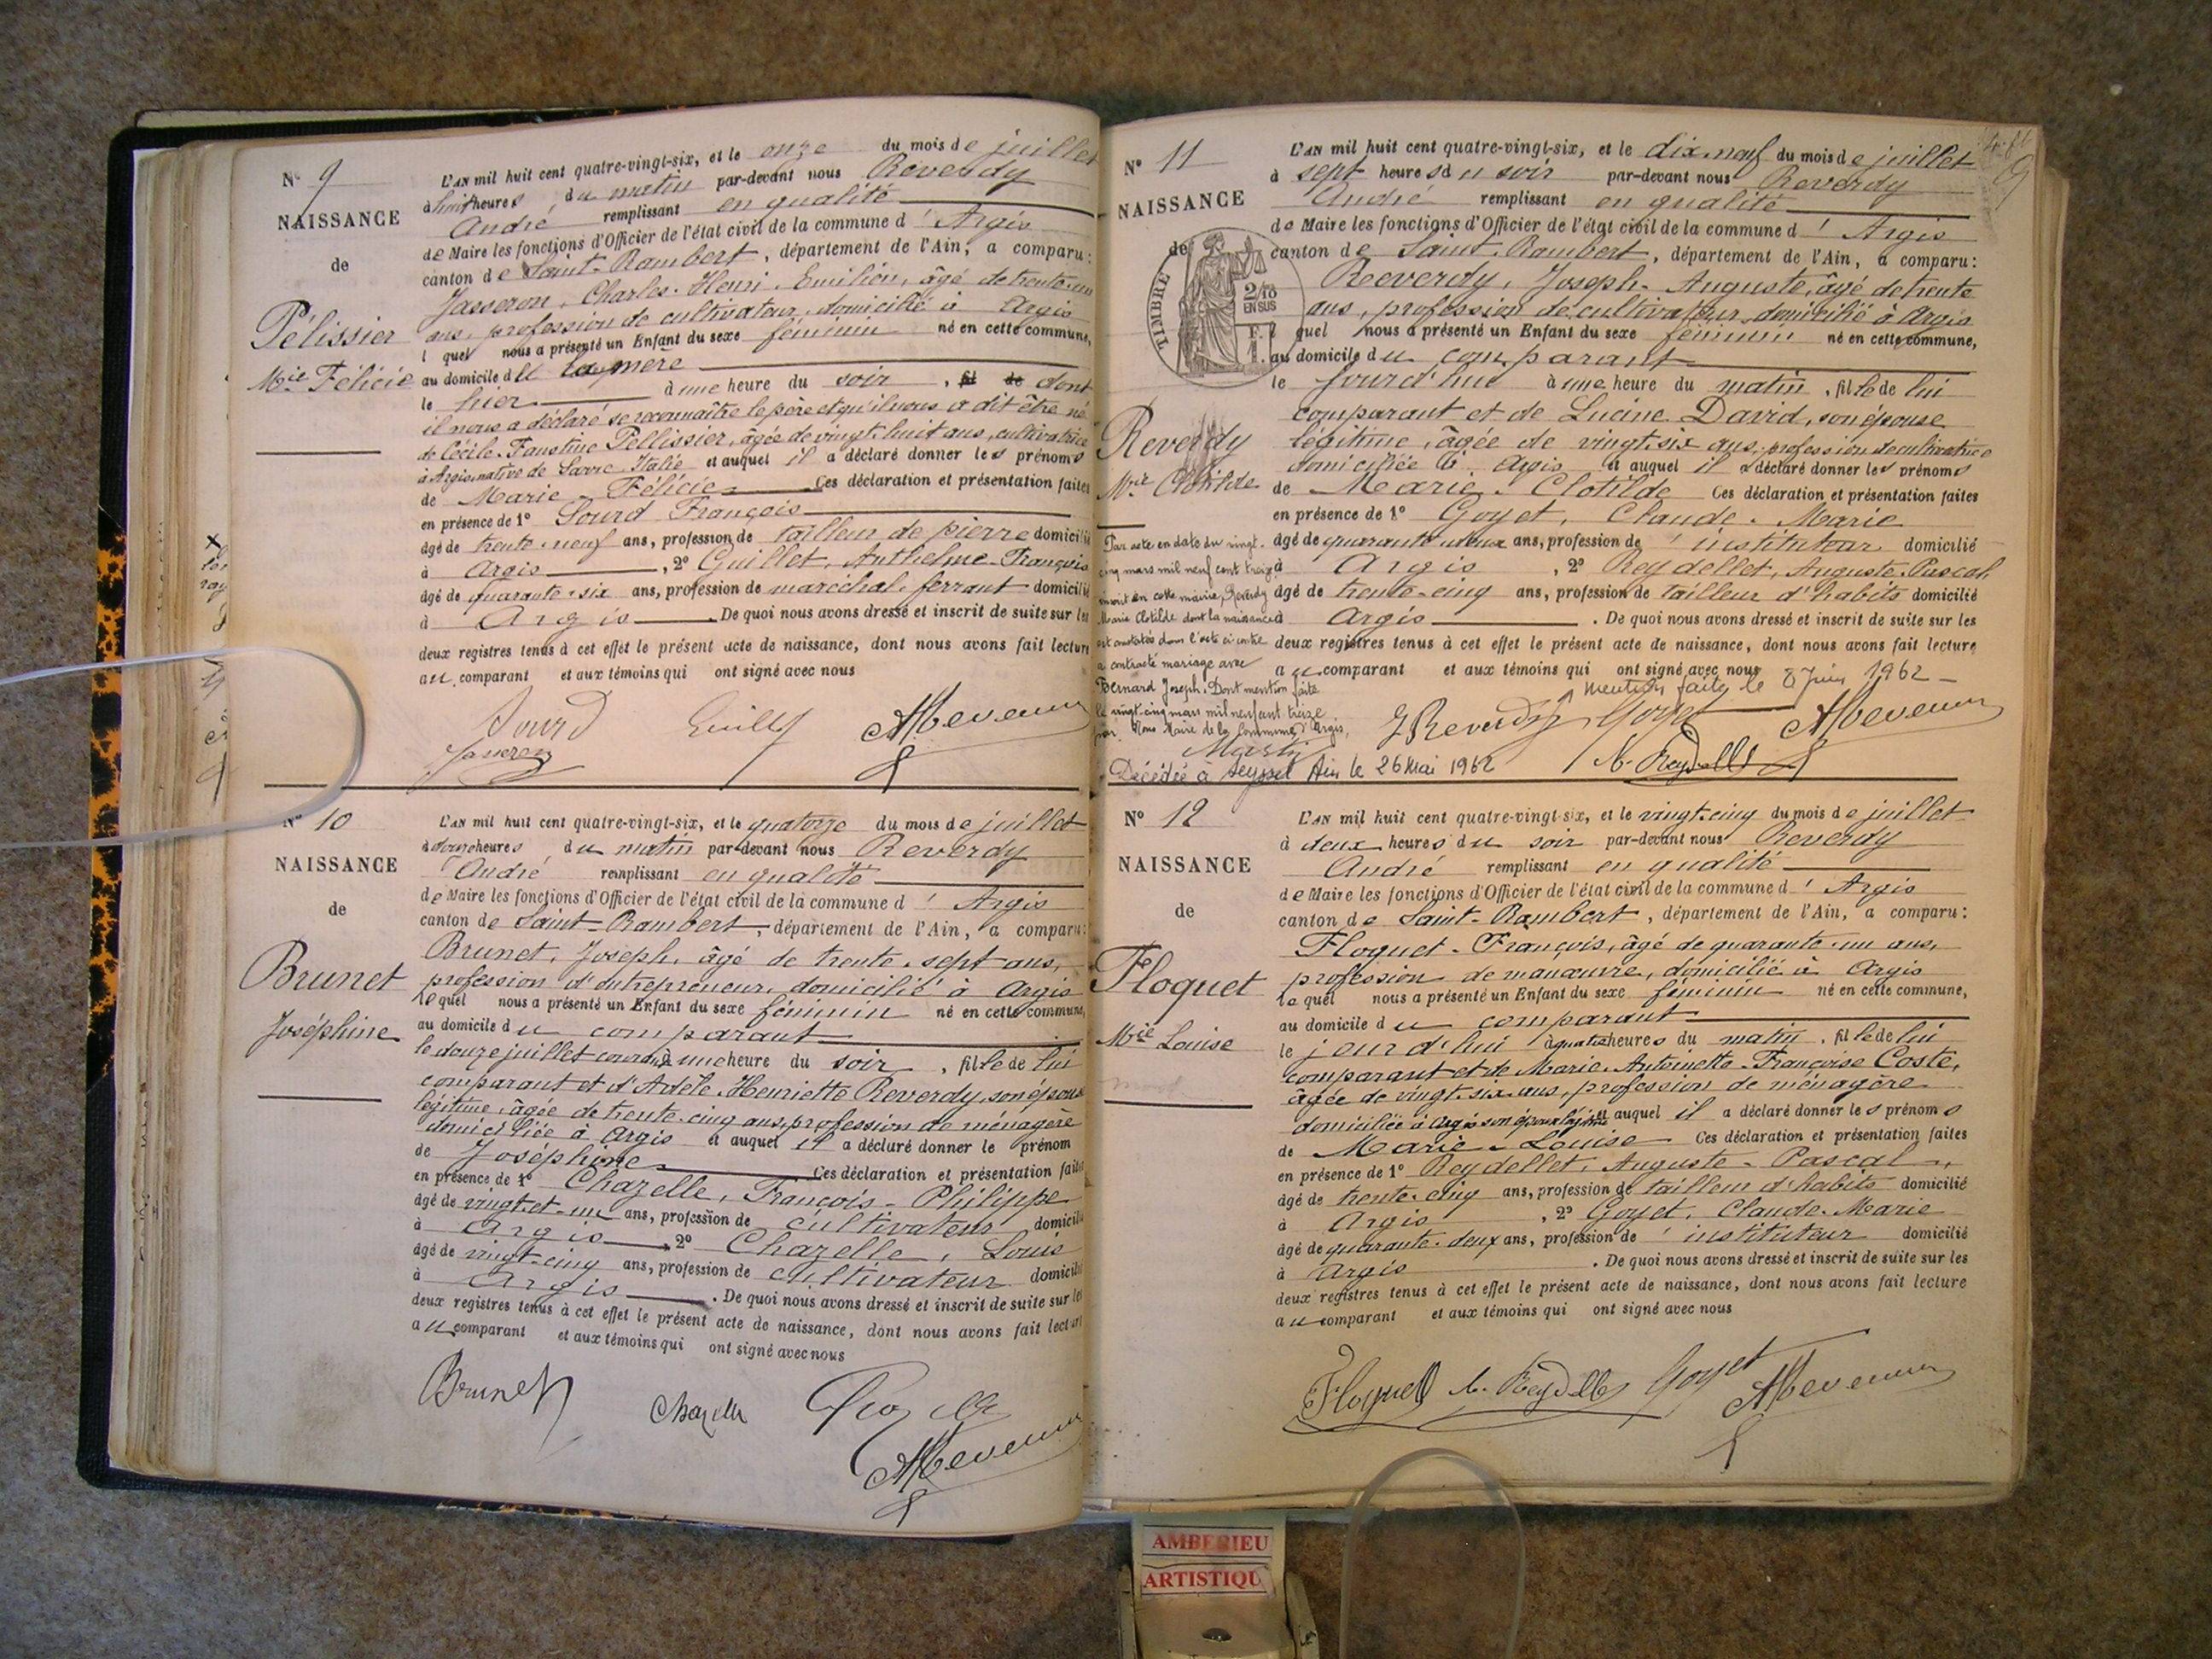 N° 9
NAISSANCE
de
Pélissier
Mie Félicie
L'AN mil huit cent quatre-vingt-six, et le onze du mois de juillet
à huit heures du matin par-devant nous Reverdy
André remplissant en qualité
de Maire les fonctions d'Officier de l'état civil de la commune d' Argis
canton de Saint-Rambert, département de l'Ain, a comparu:
Jasseron, Charles-Henri-Emilien, âgé de trente-un
ans, profession de cultivateur, domicilié à Argis
l quel nous a présenté un Enfant du sexe féminin né en cette commune,
au domicile de la mère
le hier à une heure du soir, fil de dont
il nous a déclaré se reconnaître le père et qu'il nous a dit être né
de Cécile-Faustine Pellissier, âgée de vingt-huit ans, cultivatrice
à Argis native de Sarre Italie et auquel il a déclaré donner les prénoms
de Marie-Félicie Ces déclaration et présentation faites
en présence de 1° Sourd François
âgé de trente-neuf ans, profession de tailleur de pierre domicilié
à Argis, 2° Guillet, Anthelme-François
âgé de quarante-six ans, profession de maréchal-ferrant domicilié
à Argis. De quoi nous avons dressé et inscrit de suite sur les
deux registres tenus à cet effet le présent acte de naissance, dont nous avons fait lecture
au comparant et aux témoins qui ont signé avec nous
Sourd
Jasseron
N° 10
NAISSANCE
de
Brunet
Joséphine
L'AN mil huit cent quatre-vingt-six, et le quatorze du mois de juillet
à heures du matin par-devant nous Reverdy
André remplissant en qualité
de Maire les fonctions d'Officier de l'état civil de la commune d' Argis
canton de Saint-Rambert, département de l'Ain, a comparu:
Brunet, Joseph, âgé de trente-sept ans,
profession d'entrepreneur, domicilié à Argis
lequel nous a présenté un Enfant du sexe féminin né en cette commune,
au domicile du comparant
le douze juillet courant à une heure du soir, fille de lui
comparant et d'Adèle-Henriette Reverdy, son épouse
légitime, âgée de trente-cinq ans, profession de ménagère
domiciliée à Argis et auquel il a déclaré donner le prénom
de Joséphine Ces déclaration et présentation faites
en présence de 1° Chazelle, François-Philippe
âgé de vingt-et-un ans, profession de cultivateur domicilié
à Argis, 2° Chazelle, Louis
âgé de vingt-cinq ans, profession de cultivateur domicilié
à Argis. De quoi nous avons dressé et inscrit de suite sur les
deux registres tenus à cet effet le présent acte de naissance, dont nous avons fait lecture
au comparant et aux témoins qui ont signé avec nous
Brunet
Chazelle
N° 11
NAISSANCE
de
TIMBRE
2/10
EN SUS
1 F.
Reverdy
Mie Clotilde
L'AN mil huit cent quatre-vingt-six, et le dix-neuf du mois de juillet
à sept heures du soir par-devant nous Reverdy
André remplissant en qualité
de Maire les fonctions d'Officier de l'état civil de la commune d' Argis
canton de Saint-Rambert, département de l'Ain, a comparu:
Reverdy, Joseph-Auguste, âgé de trente
ans, profession de cultivateur, domicilié à Argis
l quel nous a présenté un Enfant du sexe féminin né en cette commune,
au domicile du comparant
le jourd'hui à une heure du matin, fille de lui
comparant et de Lucine David, son épouse
légitime, âgée de vingt-six ans, profession de cultivatrice
domiciliée à Argis et auquel il a déclaré donner les prénoms
de Marie-Clotilde Ces déclaration et présentation faites
en présence de 1° Goyet, Claude-Marie
âgé de quarante-deux ans, profession d'instituteur domicilié
à Argis, 2° Reydellet, Auguste-Pascal,
âgé de trente-cinq ans, profession de tailleur d'habits domicilié
à Argis. De quoi nous avons dressé et inscrit de suite sur les
deux registres tenus à cet effet le présent acte de naissance, dont nous avons fait lecture
au comparant et aux témoins qui ont signé avec nous
mention faite le 8 Juin 1962
J Reverdy Goyet
A. Reydellet
Par acte en date du vingt-
cinq mars mil neuf cent treize
inscrit en cette mairie, Reverdy
Marie Clotilde dont la naissance
est constatée dans l'acte ci-contre
a contracté mariage avec
Bernard Joseph. Dont mention faite
le vingt-cinq mars mil neuf cent treize
par Nous Maire de la Commune d'Argis,
Décédée à Seyssel Ain le 26 Mai 1962
N° 12
NAISSANCE
de
Floquet
Mie Louise
L'AN mil huit cent quatre-vingt-six, et le vingt-cinq du mois de juillet
à deux heures du soir par-devant nous Reverdy
André remplissant en qualité
de Maire les fonctions d'Officier de l'état civil de la commune d' Argis
canton de Saint-Rambert, département de l'Ain, a comparu:
Floquet-François, âgé de quarante-un ans,
profession de manœuvre, domicilié à Argis
lequel nous a présenté un Enfant du sexe féminin né en cette commune,
au domicile du comparant
le jourd'hui à quatre heures du matin, fille de lui
comparant et de Marie-Antoinette-Françoise Coste,
âgée de vingt-six ans, profession de ménagère
domiciliée à Argis son épouse légitime et auquel il a déclaré donner les prénoms
de Marie-Louise Ces déclaration et présentation faites
en présence de 1° Reydellet, Auguste-Pascal,
âgé de trente-cinq ans, profession de tailleur d'habits domicilié
à Argis, 2° Goyet, Claude-Marie
âgé de quarante-deux ans, profession d'instituteur domicilié
à Argis. De quoi nous avons dressé et inscrit de suite sur les
deux registres tenus à cet effet le présent acte de naissance, dont nous avons fait lecture
au comparant et aux témoins qui ont signé avec nous
Floquet A. Reydellet Goyet
AMBERIEU
ARTISTIQU